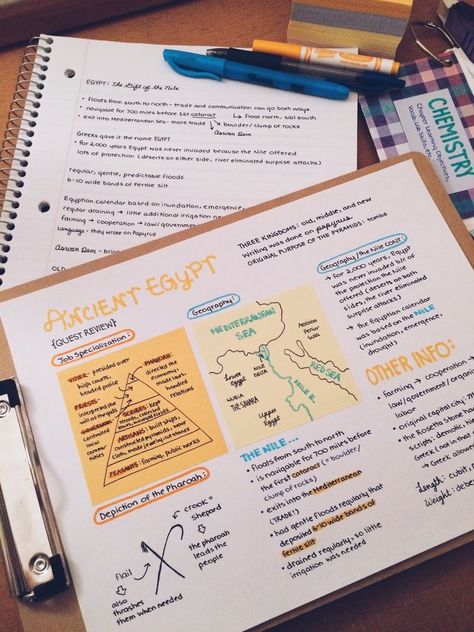 EGYPT: The Gift of the Nile
• floats from south to north - trade and communication can go both ways
• navigable for 700 miles before 1st cataract ↳ float north, sail south
• exit into Mediterranean Sea - more trade
↳ boulder/clump of rocks
Aswan Dam
Greeks gave it the name EGYPT
• for 2,000 years Egypt was never invaded because the Nile offered
lots of protection (deserts on either side, river eliminated surprise attacks)
regular, gentle, predictable floods
6-10 wide bands of fertile silt
Egyptian calendar based on inundation, emergence,
regular draining → little additional irrigation
farming → cooperation → law/government
Language - they wrote on Papyrus
Aswan Dam -
CHEMISTRY
Chapter Learning Objectives,
Vocab, Lab Skills,
etc.
ANCIENT EGYPT
{QUEST REVIEW}
THREE KINGDOMS: old, middle, and new
Writing was done on papyrus
ORIGINAL PURPOSE OF THE PYRAMIDS: tombs
Job Specialization:
VIZIER: presided over
high courts,
headed police
PHAROAH:
directed the
economy,
made laws,
handled
relations
PRIESTS:
interpreted the
will of the gods
GOVERNORS:
controlled
local
SCRIBES: kept
ARTISANS: built ships,
constructed pyramids, wove
cloth, made jewelry, cut stones
PEASANTS: farming, public works
Geography:
MEDITERRANEAN
SEA
Lower
Egypt
NILE
DELTA
NUBIA
THE SAHARA
Upper
Egypt
NILE R.
RED SEA
Geography/the Nile CONT.
→ for 2000 years, Egypt
was never invaded b/c of
the protection the Nile
offered (deserts on both
sides, the river eliminated
surprise attacks)
→ the Egyptian calendar
was based on the NILE
(inundation, emergence,
drought)
THE NILE...
• floats from south to north
• is navigable for 700 miles before
the first cataract (= boulder/
clump of rocks)
• exits into the Mediterranean
(TRADE!)
• had gentle floods regularly that
deposited 6-10 wide bands of
fertile silt
• drained regularly, so little
irrigation was needed
OTHER INFO:
• farming → cooperation
law/government/organized
labor
• original capital city:
• the Rosetta Stone
scripts: demotic,
Greek
→ Greek
Length: cubit
Weight: deben
Depiction of the Pharoah:
crook =
shepard
↳ the pharoah
leads the
people
flail
also
thrashes
them when needed